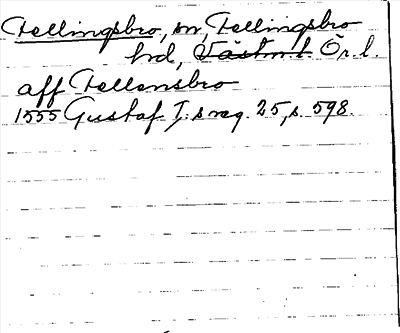 Fellingsbro, sn, Fellingsbro
hd, Västm. l. Ör. l.
aff Fellensbro
1555 Gustaf I:s reg. 25, s. 598.